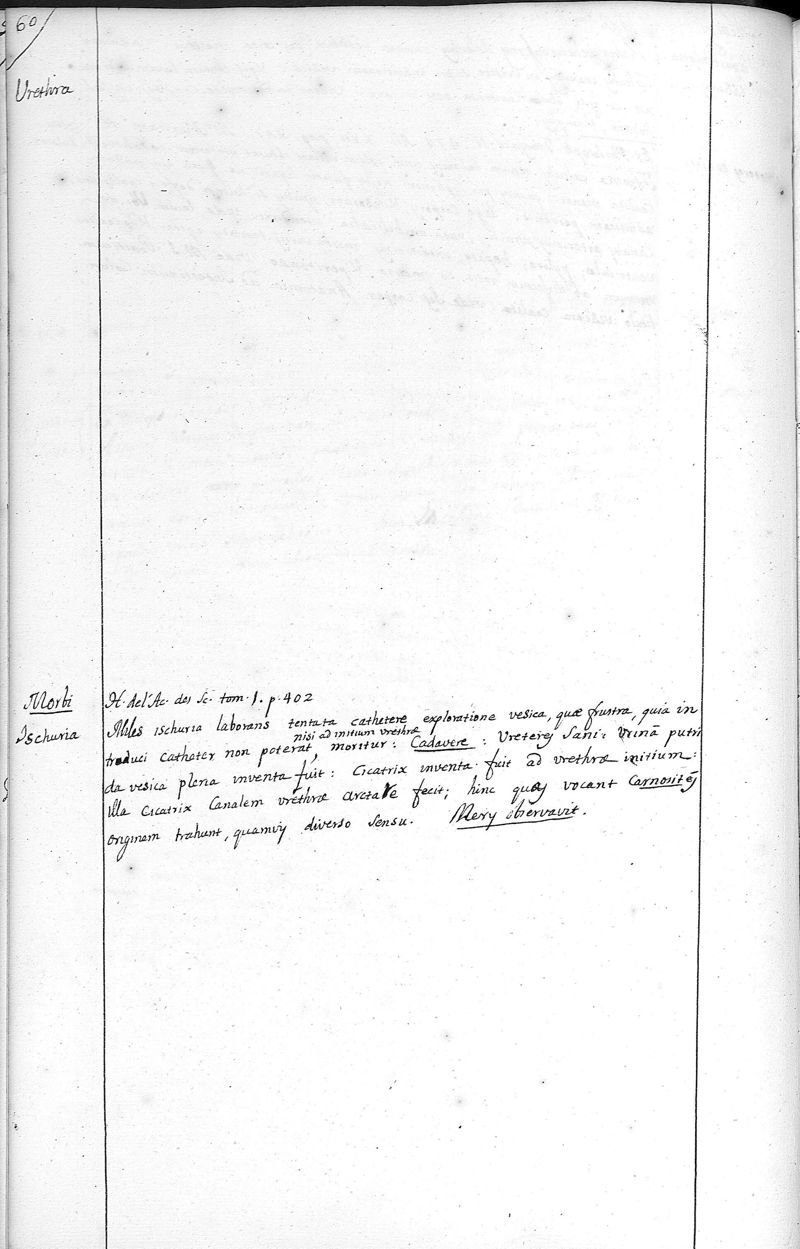 60
Urethra
Morbi
Ischuria
H. del'Ac. des Sc. tom. 1. p. 402
Miles ischuria laborans tentata cathetere exploratione vesica, quæ frustra, quia in
nisi ad initium urethræ
traduci catheter non poterat, moritur: Cadavere: Ureterej Sani: Urinâ putri
da vesica plena inventa fuit: Cicatrix inventa fuit ad urethræ initium:
illa Cicatrix Canalem urethræ arctare fecit; hinc quaj vocant Carnositej
originem trahunt, quamvij diverso sensu. Mery observavit.